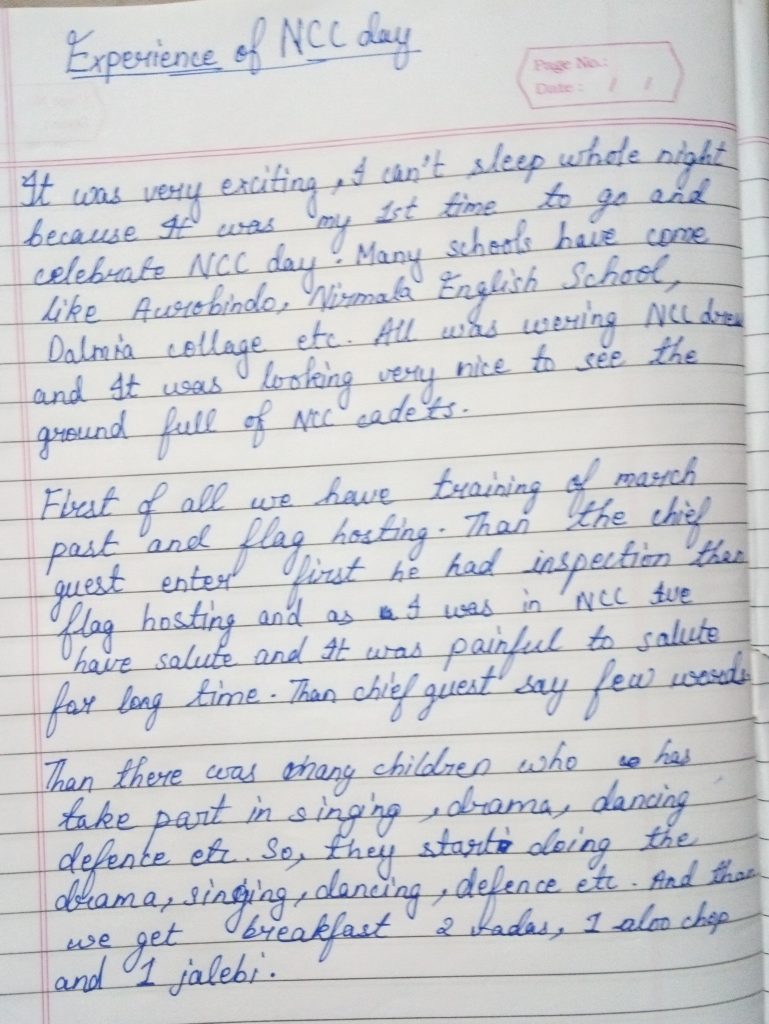 Experience of NCC day
Page No.:
Date : / /
It was very exciting, I can't sleep whole night
because It was my 1st time to go and
celebrate NCC day. Many schools have come
like Aurobindo, Nirmala English School,
Dalmia collage etc. All was wering NCC dress
and It was looking very nice to see the
ground full of NCC cadets.
First of all we have training of march
past and flag hosting. Than the chief
guest enter first he had inspection than
flag hosting and as I was in NCC
have salute and It was painful to salute
for long time. Than chief guest say few words
Than there was many children who has
take part in singing, drama, dancing
defence etc. So, they start doing the
drama, singing, dancing, defence etc. And than
we get breakfast 2 vadas, 1 aloo chop
and 1 jalebi.